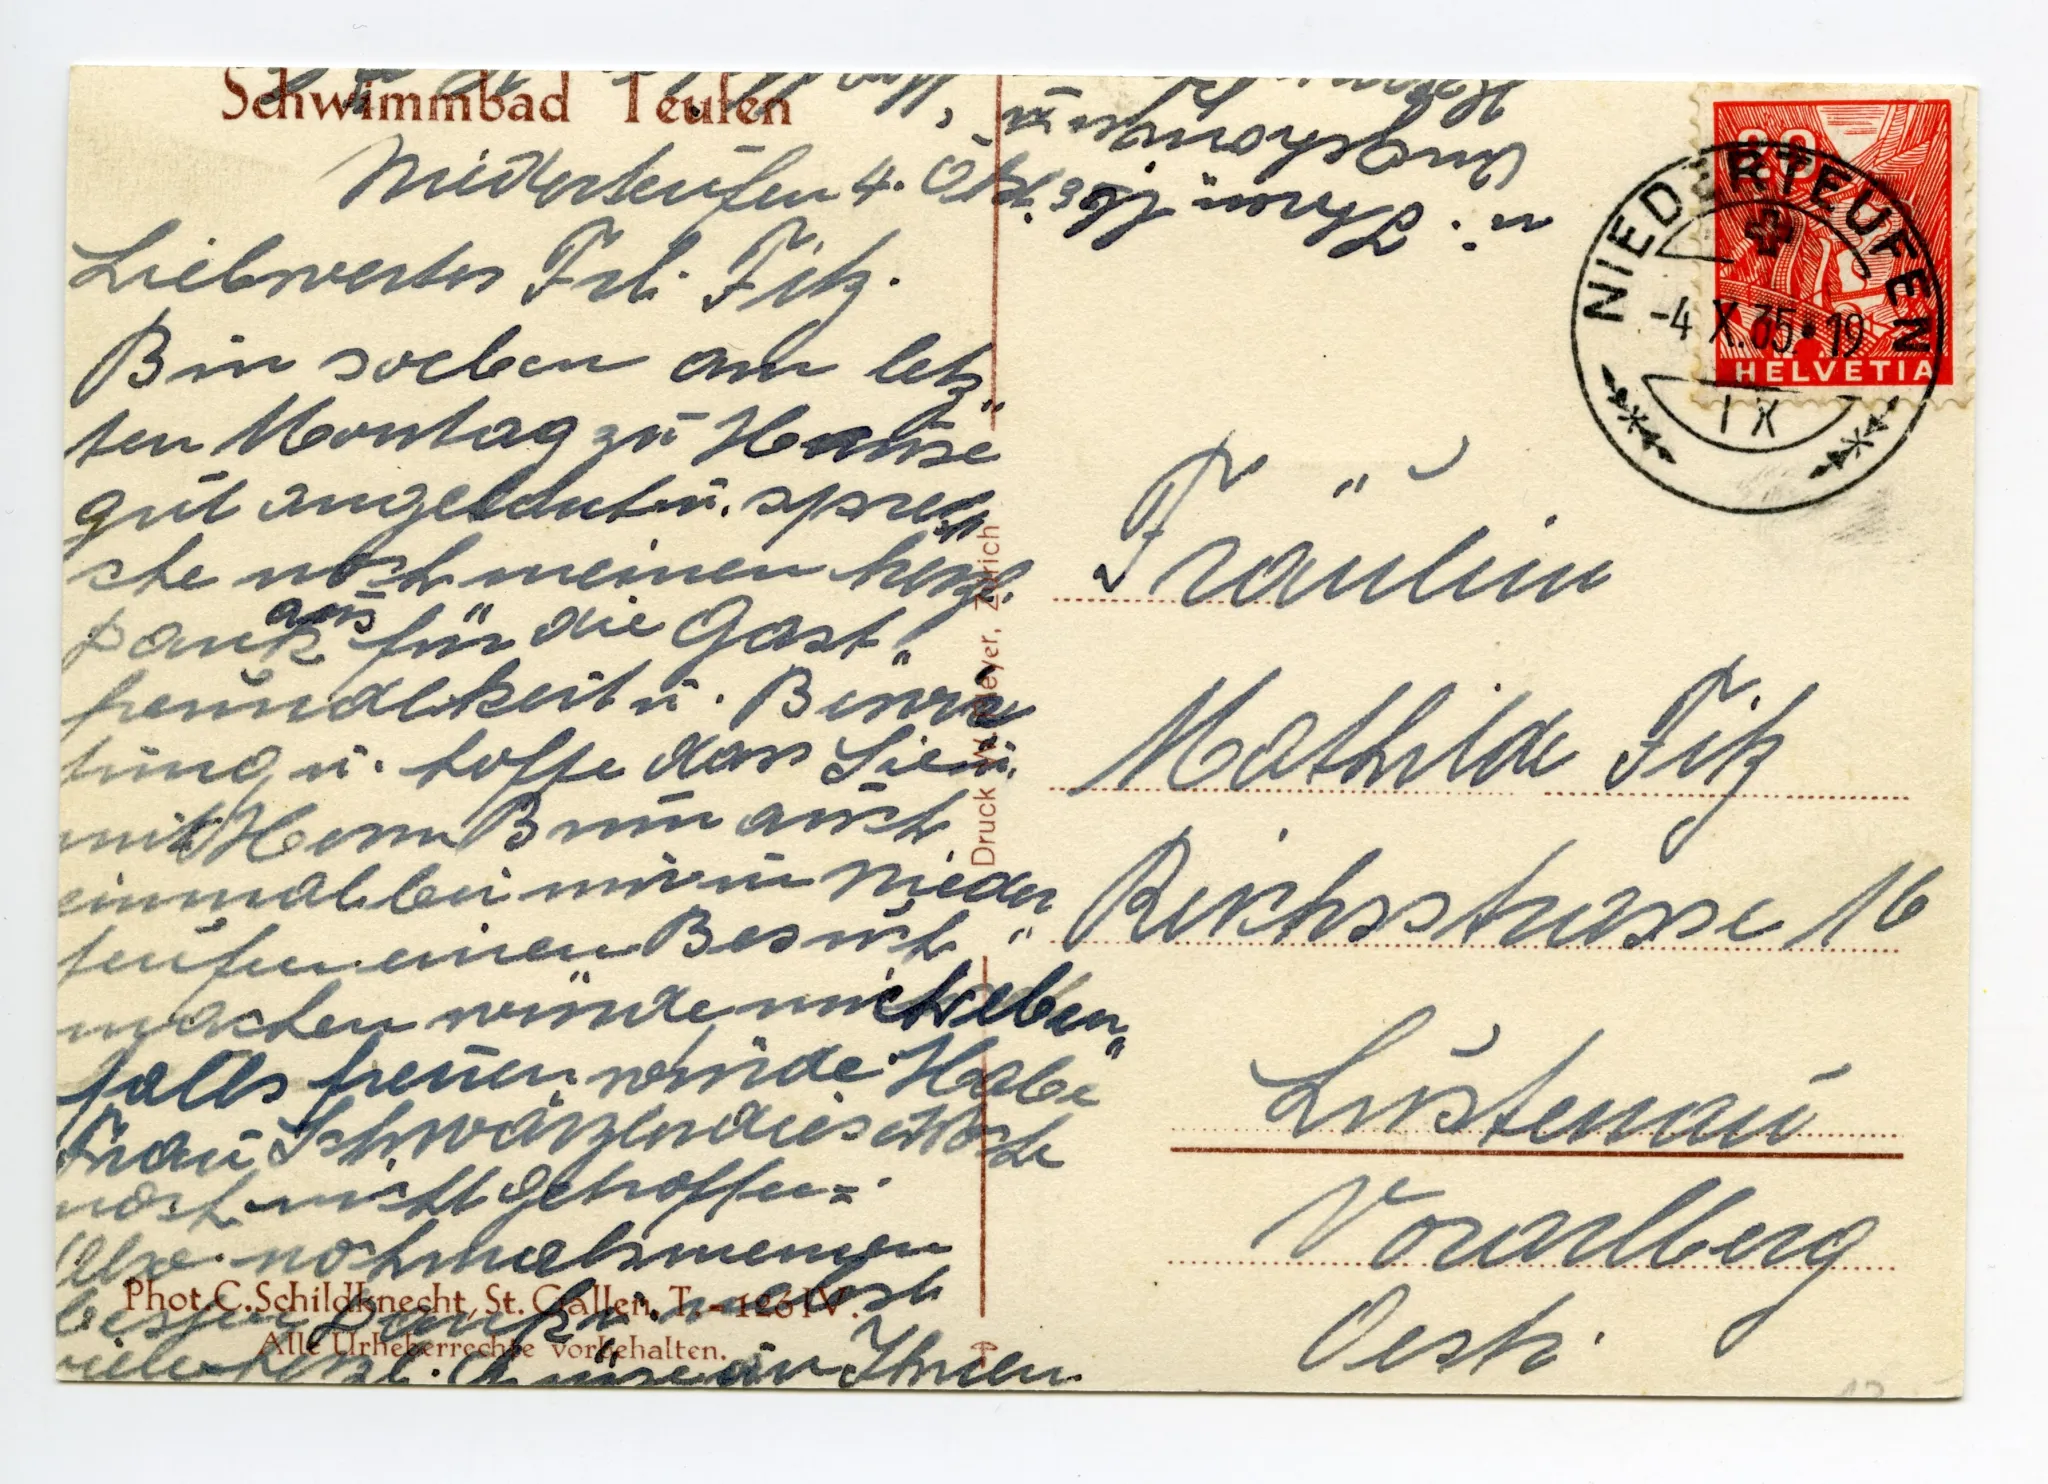 Schwimmbad Teufen
Niederteufen 4. Okt. 35.
Liebwertes Frl. Fitz.
Bin soeben am letz„
ten Montag zu Hause
gut angelangt u. spre„
che noch meinen herzl.
Dank aus für die Gast„
freundlichkeit u. Bewir„
tung u. hoffe dass Sie
mit Herrn auch
einmal bei mir in Nieder„
teufen einen Besuch
machen würde mich eben„
falls freuen würde. Habe
Frau diese Woche
noch nicht getroffen =
Also nochmals meinen
besten Dank nebst
vielen herzl. Grüsse an Ihnen
u. Ihre
Angehörigen
Phot. C. Schildknecht, St. Gallen. T. – 126 IV.
Alle Urheberrechte vorbehalten.
Druck W. Meyer, Zürich
20
HELVETIA
NIEDERTEUFEN
-4.X.35•19
IX
Fräulein
Mathilde Fitz
Reichsstrasse 16
Lustenau
Vorarlberg
Oestr.